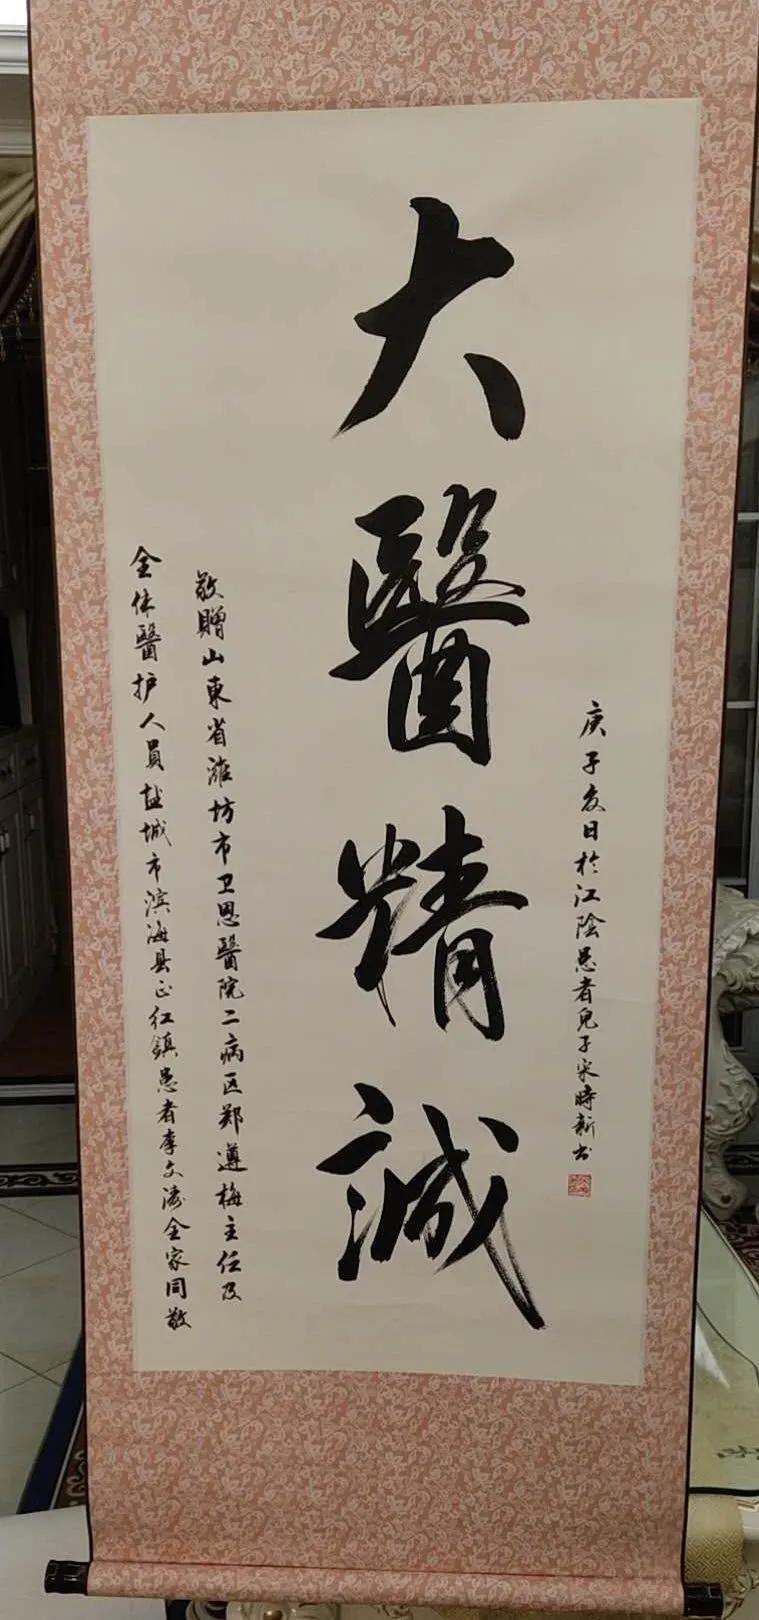 庚子夏日於江陰患者兒子宋時新书
大醫精誠
敬贈山東省濰坊市卫恩醫院二病区郑遵梅主任及
全体醫护人員盐城市滨海县正红鎮患者李文涛全家同敬